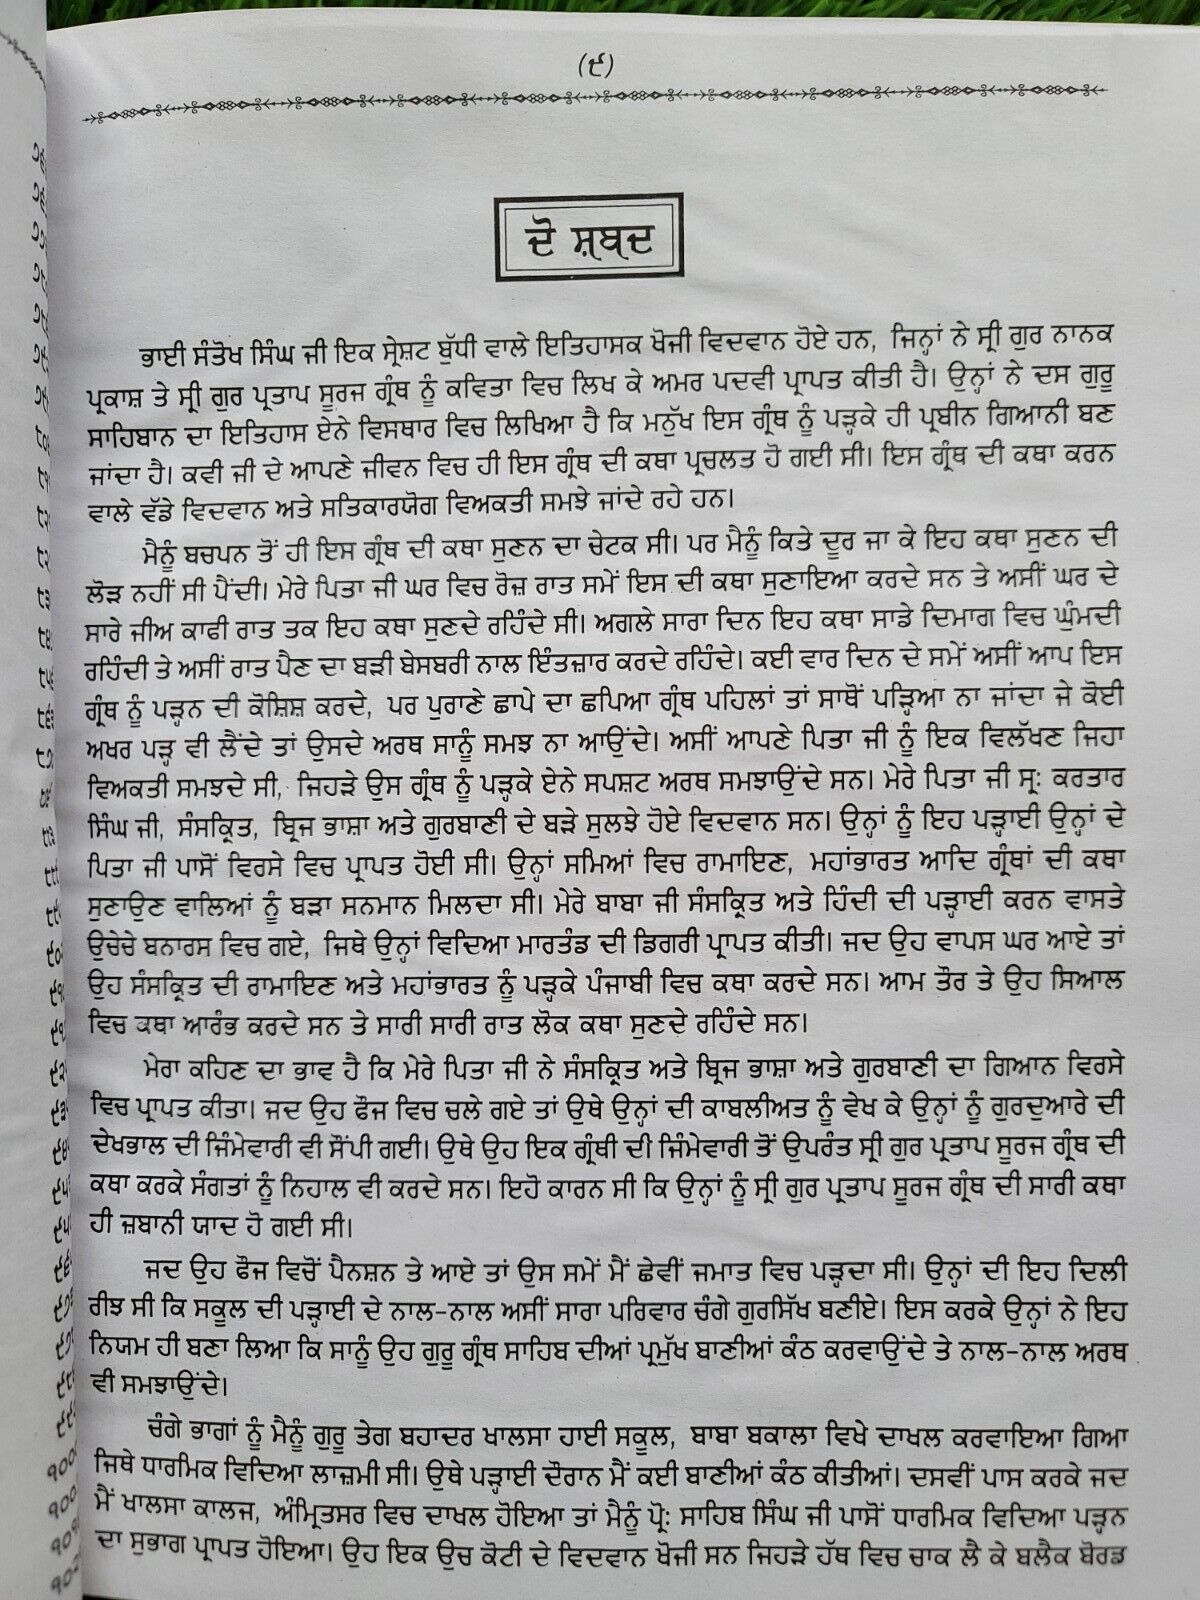 (੯)
ਦੋ ਸ਼ਬਦ
ਭਾਈ ਸੰਤੋਖ ਸਿੰਘ ਜੀ ਇਕ ਸ੍ਰੇਸ਼ਟ ਬੁੱਧੀ ਵਾਲੇ ਇਤਿਹਾਸਕ ਖੋਜੀ ਵਿਦਵਾਨ ਹੋਏ ਹਨ, ਜਿਨ੍ਹਾਂ ਨੇ ਸ੍ਰੀ ਗੁਰ ਨਾਨਕ
ਪ੍ਰਕਾਸ਼ ਤੇ ਸ੍ਰੀ ਗੁਰ ਪ੍ਰਤਾਪ ਸੂਰਜ ਗ੍ਰੰਥ ਨੂੰ ਕਵਿਤਾ ਵਿਚ ਲਿਖ ਕੇ ਅਮਰ ਪਦਵੀ ਪ੍ਰਾਪਤ ਕੀਤੀ ਹੈ। ਉਨ੍ਹਾਂ ਨੇ ਦਸ ਗੁਰੂ
ਸਾਹਿਬਾਨ ਦਾ ਇਤਿਹਾਸ ਏਨੇ ਵਿਸਥਾਰ ਵਿਚ ਲਿਖਿਆ ਹੈ ਕਿ ਮਨੁੱਖ ਇਸ ਗ੍ਰੰਥ ਨੂੰ ਪੜ੍ਹਕੇ ਹੀ ਪ੍ਰਬੀਨ ਗਿਆਨੀ ਬਣ
ਜਾਂਦਾ ਹੈ। ਕਵੀ ਜੀ ਦੇ ਆਪਣੇ ਜੀਵਨ ਵਿਚ ਹੀ ਇਸ ਗ੍ਰੰਥ ਦੀ ਕਥਾ ਪ੍ਰਚਲਤ ਹੋ ਗਈ ਸੀ। ਇਸ ਗ੍ਰੰਥ ਦੀ ਕਥਾ ਕਰਨ
ਵਾਲੇ ਵੱਡੇ ਵਿਦਵਾਨ ਅਤੇ ਸਤਿਕਾਰਯੋਗ ਵਿਅਕਤੀ ਸਮਝੇ ਜਾਂਦੇ ਰਹੇ ਹਨ।
ਮੈਨੂੰ ਬਚਪਨ ਤੋਂ ਹੀ ਇਸ ਗ੍ਰੰਥ ਦੀ ਕਥਾ ਸੁਣਨ ਦਾ ਚੇਟਕ ਸੀ। ਪਰ ਮੈਨੂੰ ਕਿਤੇ ਦੂਰ ਜਾ ਕੇ ਇਹ ਕਥਾ ਸੁਣਨ ਦੀ
ਲੋੜ ਨਹੀਂ ਸੀ ਪੈਂਦੀ। ਮੇਰੇ ਪਿਤਾ ਜੀ ਘਰ ਵਿਚ ਰੋਜ਼ ਰਾਤ ਸਮੇਂ ਇਸ ਦੀ ਕਥਾ ਸੁਣਾਇਆ ਕਰਦੇ ਸਨ ਤੇ ਅਸੀਂ ਘਰ ਦੇ
ਸਾਰੇ ਜੀਅ ਕਾਫੀ ਰਾਤ ਤਕ ਇਹ ਕਥਾ ਸੁਣਦੇ ਰਹਿੰਦੇ ਸੀ। ਅਗਲੇ ਸਾਰਾ ਦਿਨ ਇਹ ਕਥਾ ਸਾਡੇ ਦਿਮਾਗ ਵਿਚ ਘੁੰਮਦੀ
ਰਹਿੰਦੀ ਤੇ ਅਸੀਂ ਰਾਤ ਪੈਣ ਦਾ ਬੜੀ ਬੇਸਬਰੀ ਨਾਲ ਇੰਤਜ਼ਾਰ ਕਰਦੇ ਰਹਿੰਦੇ। ਕਈ ਵਾਰ ਦਿਨ ਦੇ ਸਮੇਂ ਅਸੀਂ ਆਪ ਇਸ
ਗ੍ਰੰਥ ਨੂੰ ਪੜ੍ਹਨ ਦੀ ਕੋਸ਼ਿਸ਼ ਕਰਦੇ, ਪਰ ਪੁਰਾਣੇ ਛਾਪੇ ਦਾ ਛਪਿਆ ਗ੍ਰੰਥ ਪਹਿਲਾਂ ਤਾਂ ਸਾਥੋਂ ਪੜ੍ਹਿਆ ਨਾ ਜਾਂਦਾ ਜੇ ਕੋਈ
ਅਖਰ ਪੜ੍ਹ ਵੀ ਲੈਂਦੇ ਤਾਂ ਉਸਦੇ ਅਰਥ ਸਾਨੂੰ ਸਮਝ ਨਾ ਆਉਂਦੇ। ਅਸੀਂ ਆਪਣੇ ਪਿਤਾ ਜੀ ਨੂੰ ਇਕ ਵਿਲੱਖਣ ਜਿਹਾ
ਵਿਅਕਤੀ ਸਮਝਦੇ ਸੀ, ਜਿਹੜੇ ਉਸ ਗ੍ਰੰਥ ਨੂੰ ਪੜ੍ਹਕੇ ਏਨੇ ਸਪਸ਼ਟ ਅਰਥ ਸਮਝਾਉਂਦੇ ਸਨ। ਮੇਰੇ ਪਿਤਾ ਜੀ ਸ੍ਰ: ਕਰਤਾਰ
ਸਿੰਘ ਜੀ, ਸੰਸਕ੍ਰਿਤ, ਬ੍ਰਿਜ ਭਾਸ਼ਾ ਅਤੇ ਗੁਰਬਾਣੀ ਦੇ ਬੜੇ ਸੁਲਝੇ ਹੋਏ ਵਿਦਵਾਨ ਸਨ। ਉਨ੍ਹਾਂ ਨੂੰ ਇਹ ਪੜ੍ਹਾਈ ਉਨ੍ਹਾਂ ਦੇ
ਪਿਤਾ ਜੀ ਪਾਸੋਂ ਵਿਰਸੇ ਵਿਚ ਪ੍ਰਾਪਤ ਹੋਈ ਸੀ। ਉਨ੍ਹਾਂ ਸਮਿਆਂ ਵਿਚ ਰਾਮਾਇਣ, ਮਹਾਂਭਾਰਤ ਆਦਿ ਗ੍ਰੰਥਾਂ ਦੀ ਕਥਾ
ਸੁਣਾਉਣ ਵਾਲਿਆਂ ਨੂੰ ਬੜਾ ਸਨਮਾਨ ਮਿਲਦਾ ਸੀ। ਮੇਰੇ ਬਾਬਾ ਜੀ ਸੰਸਕ੍ਰਿਤ ਅਤੇ ਹਿੰਦੀ ਦੀ ਪੜ੍ਹਾਈ ਕਰਨ ਵਾਸਤੇ
ਉਚੇਚੇ ਬਨਾਰਸ ਵਿਚ ਗਏ, ਜਿਥੇ ਉਨ੍ਹਾਂ ਵਿਦਿਆ ਮਾਰਤੰਡ ਦੀ ਡਿਗਰੀ ਪ੍ਰਾਪਤ ਕੀਤੀ। ਜਦ ਉਹ ਵਾਪਸ ਘਰ ਆਏ ਤਾਂ
ਉਹ ਸੰਸਕ੍ਰਿਤ ਦੀ ਰਾਮਾਇਣ ਅਤੇ ਮਹਾਂਭਾਰਤ ਨੂੰ ਪੜ੍ਹਕੇ ਪੰਜਾਬੀ ਵਿਚ ਕਥਾ ਕਰਦੇ ਸਨ। ਆਮ ਤੌਰ ਤੇ ਉਹ ਸਿਆਲ
ਵਿਚ ਕਥਾ ਆਰੰਭ ਕਰਦੇ ਸਨ ਤੇ ਸਾਰੀ ਸਾਰੀ ਰਾਤ ਲੋਕ ਕਥਾ ਸੁਣਦੇ ਰਹਿੰਦੇ ਸਨ।
ਮੇਰਾ ਕਹਿਣ ਦਾ ਭਾਵ ਹੈ ਕਿ ਮੇਰੇ ਪਿਤਾ ਜੀ ਨੇ ਸੰਸਕ੍ਰਿਤ ਅਤੇ ਬ੍ਰਿਜ ਭਾਸ਼ਾ ਅਤੇ ਗੁਰਬਾਣੀ ਦਾ ਗਿਆਨ ਵਿਰਸੇ
ਵਿਚ ਪ੍ਰਾਪਤ ਕੀਤਾ। ਜਦ ਉਹ ਫੌਜ ਵਿਚ ਚਲੇ ਗਏ ਤਾਂ ਉਥੇ ਉਨ੍ਹਾਂ ਦੀ ਕਾਬਲੀਅਤ ਨੂੰ ਵੇਖ ਕੇ ਉਨ੍ਹਾਂ ਨੂੰ ਗੁਰਦੁਆਰੇ ਦੀ
ਦੇਖਭਾਲ ਦੀ ਜਿੰਮੇਵਾਰੀ ਵੀ ਸੌਂਪੀ ਗਈ। ਉਥੇ ਉਹ ਇਕ ਗ੍ਰੰਥੀ ਦੀ ਜਿੰਮੇਵਾਰੀ ਤੋਂ ਉਪਰੰਤ ਸ੍ਰੀ ਗੁਰ ਪ੍ਰਤਾਪ ਸੂਰਜ ਗ੍ਰੰਥ ਦੀ
ਕਥਾ ਕਰਕੇ ਸੰਗਤਾਂ ਨੂੰ ਨਿਹਾਲ ਵੀ ਕਰਦੇ ਸਨ। ਇਹੋ ਕਾਰਨ ਸੀ ਕਿ ਉਨ੍ਹਾਂ ਨੂੰ ਸ੍ਰੀ ਗੁਰ ਪ੍ਰਤਾਪ ਸੂਰਜ ਗ੍ਰੰਥ ਦੀ ਸਾਰੀ ਕਥਾ
ਹੀ ਜ਼ਬਾਨੀ ਯਾਦ ਹੋ ਗਈ ਸੀ।
ਜਦ ਉਹ ਫੌਜ ਵਿਚੋਂ ਪੈਨਸ਼ਨ ਤੇ ਆਏ ਤਾਂ ਉਸ ਸਮੇਂ ਮੈਂ ਛੇਵੀਂ ਜਮਾਤ ਵਿਚ ਪੜ੍ਹਦਾ ਸੀ। ਉਨ੍ਹਾਂ ਦੀ ਇਹ ਦਿਲੀ
ਰੀਝ ਸੀ ਕਿ ਸਕੂਲ ਦੀ ਪੜ੍ਹਾਈ ਦੇ ਨਾਲ-ਨਾਲ ਅਸੀਂ ਸਾਰਾ ਪਰਿਵਾਰ ਚੰਗੇ ਗੁਰਸਿੱਖ ਬਣੀਏ। ਇਸ ਕਰਕੇ ਉਨ੍ਹਾਂ ਨੇ ਇਹ
ਨਿਯਮ ਹੀ ਬਣਾ ਲਿਆ ਕਿ ਸਾਨੂੰ ਉਹ ਗੁਰੂ ਗ੍ਰੰਥ ਸਾਹਿਬ ਦੀਆਂ ਪ੍ਰਮੁੱਖ ਬਾਣੀਆਂ ਕੰਠ ਕਰਵਾਉਂਦੇ ਤੇ ਨਾਲ-ਨਾਲ ਅਰਥ
ਵੀ ਸਮਝਾਉਂਦੇ।
ਚੰਗੇ ਭਾਗਾਂ ਨੂੰ ਮੈਨੂੰ ਗੁਰੂ ਤੇਗ ਬਹਾਦਰ ਖਾਲਸਾ ਹਾਈ ਸਕੂਲ, ਬਾਬਾ ਬਕਾਲਾ ਵਿਖੇ ਦਾਖਲ ਕਰਵਾਇਆ ਗਿਆ
ਜਿਥੇ ਧਾਰਮਿਕ ਵਿਦਿਆ ਲਾਜ਼ਮੀ ਸੀ। ਉਥੇ ਪੜ੍ਹਾਈ ਦੌਰਾਨ ਮੈਂ ਕਈ ਬਾਣੀਆਂ ਕੰਠ ਕੀਤੀਆਂ। ਦਸਵੀਂ ਪਾਸ ਕਰਕੇ ਜਦ
ਮੈਂ ਖਾਲਸਾ ਕਾਲਜ, ਅੰਮ੍ਰਿਤਸਰ ਵਿਚ ਦਾਖਲ ਹੋਇਆ ਤਾਂ ਮੈਨੂੰ ਪ੍ਰੋ: ਸਾਹਿਬ ਸਿੰਘ ਜੀ ਪਾਸੋਂ ਧਾਰਮਿਕ ਵਿਦਿਆ ਪੜ੍ਹਨ
ਦਾ ਸੁਭਾਗ ਪ੍ਰਾਪਤ ਹੋਇਆ। ਉਹ ਇਕ ਉਚ ਕੋਟੀ ਦੇ ਵਿਦਵਾਨ ਖੋਜੀ ਸਨ ਜਿਹੜੇ ਹੱਥ ਵਿਚ ਚਾਕ ਲੈ ਕੇ ਬਲੈਕ ਬੋਰਡ